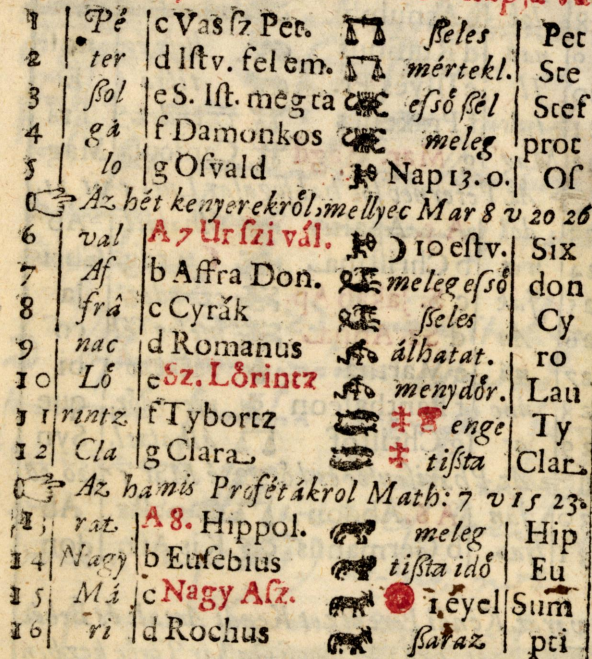 1 Pé c Vas ſz Pet. ßeles Pet
2 ter d Iſtv. fel em. mértekl. Ste
3 ßol e S. Iſt. meg ta eſső ßél Stef
4 gá f Damonkos meleg prot
5 lo g Oſvald Nap 13. 0. Oſ
Az hét kenyerekről, mellyec Mar 8 v 20 26
6 val A 7 Ur ſzi vál. ☽ 10 eſtv. Six
7 Af b Affra Don. meleg eſső don
8 frá c Cyrák ßeles Cy
9 nac d Romanus álhatat. ro
10 Lő e Sz. Lőrintz menydőr. Lau
11 rintz f Tybortz ‡ enge Ty
12 Cla g Clara ‡ tißta Clar
Az hamis Profétákrol Math: 7 v 15 23.
13 rat A 8. Hippol. meleg Hip
14 Nagy b Euſebius tißta idő Eu
15 Má c Nagy Aſz. 1 éyel Sum
16 ri d Rochus ßaraz pti